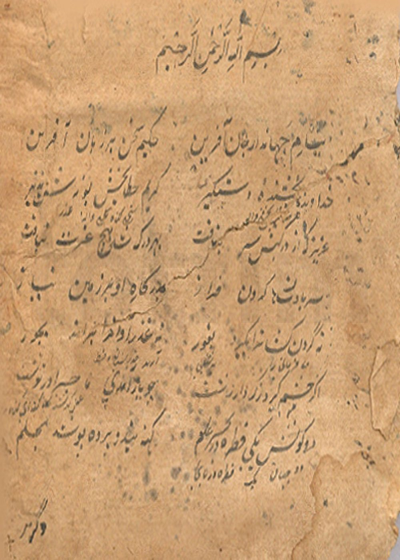 بسم الله الرحمن الرحیم
بنام جهاندار جان آفرین حکیم سخن بر زبان آفرین
خداوند بخشنده دستگیر کریم خطا بخش پوزش پذیر
عزیزی که از درگهش سر بتافت بهر در که شد هیچ عزت نیافت
سر پادشاهان گردن فراز بدرگاه او بر زمین نیاز
نه گردن کشان را بگیرد بفور نه عذر آوران را براند بجور
اگر خشم گیرد ز کردار زشت چو باز آمدی ماجرا در نوشت
دو کونش یکی قطره در بحر علم گنه بیند و پرده پوشد بحلم